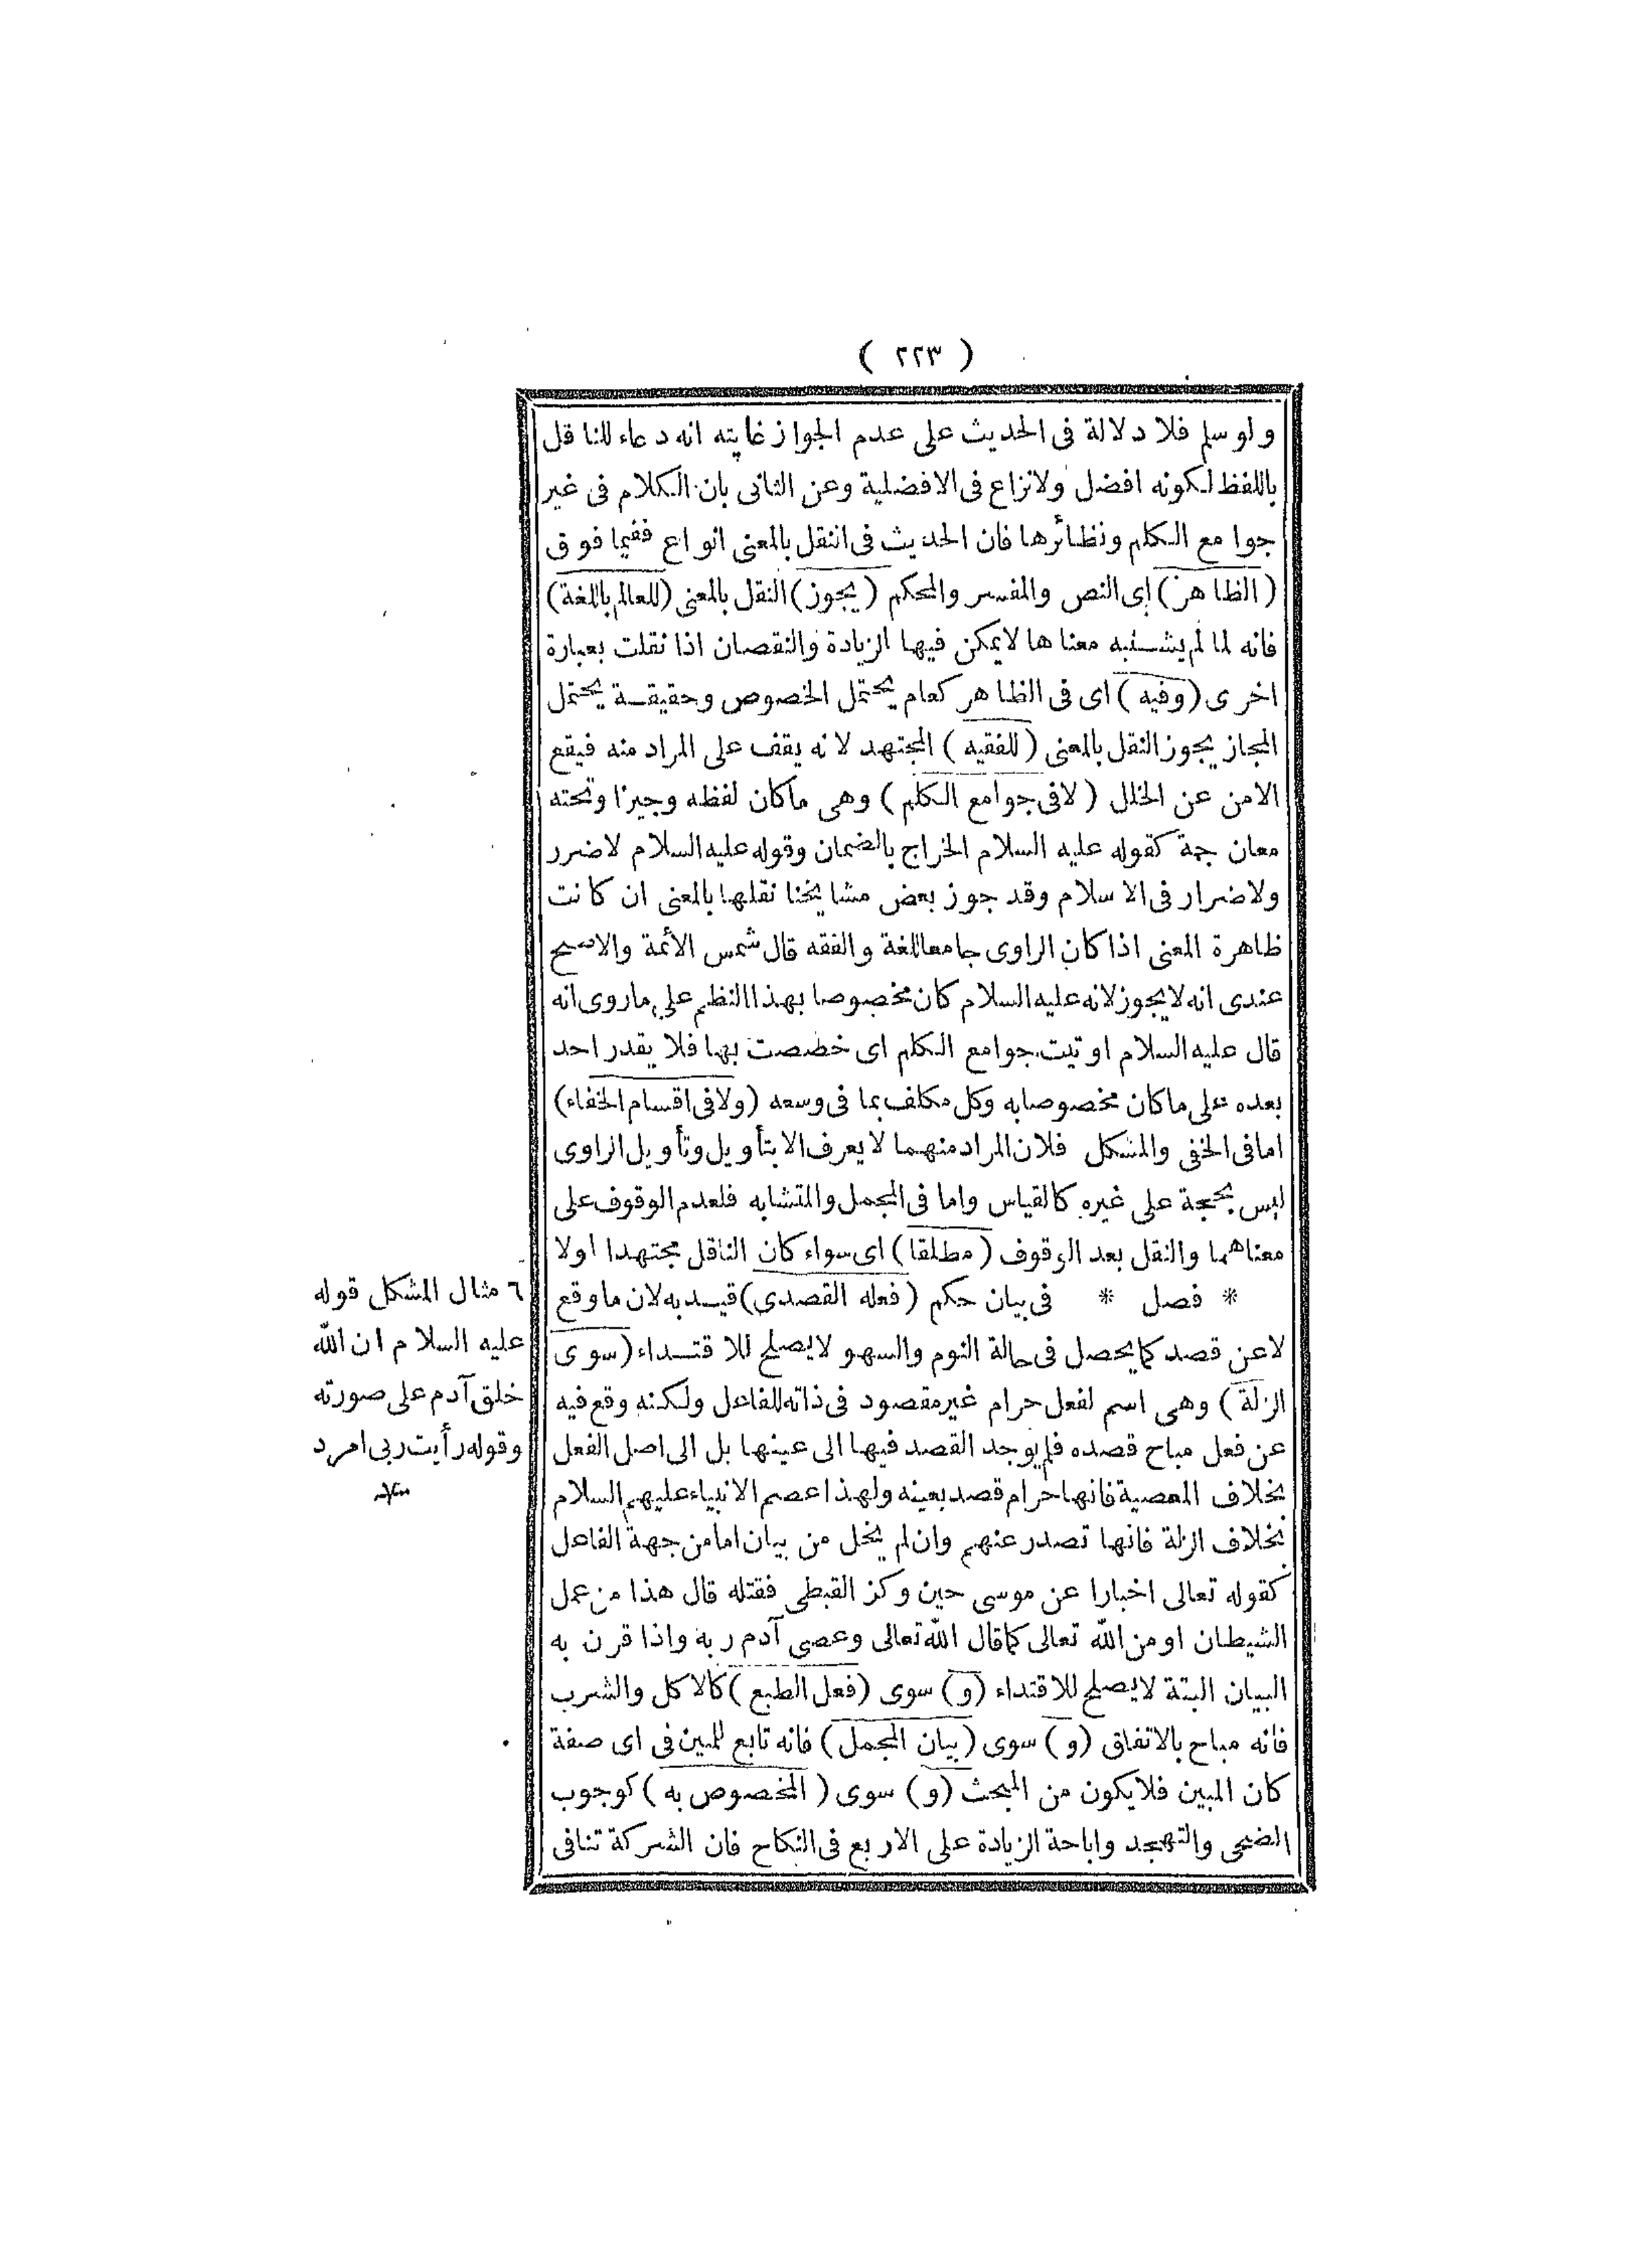 ( ٢٢٣ )
ولو سلم فلا دلالة فى الحديث على عدم الجواز غايته انه دعاء للناقل
باللفظ لكونه افضل ولانزاع فى الافضلية وعن الثانى بان الكلام فى غير
جوامع الكلم ونظائرها فان الحديث فى النقل بالمعنى انواع ففيما فوق
(الظاهر) اى النص والمفسر والمحكم (يجوز) النقل بالمعنى (للعالم باللغة)
فانه لما لم يشتبه معناها لايمكن فيها الزيادة والنقصان اذا نقلت بعبارة
اخرى (وفيه) اى فى الظاهر كعام يحتمل الخصوص وحقيقة يحتمل
المجاز يجوز النقل بالمعنى (للفقيه) المجتهد لانه يقف على المراد منه فيقع
الامن عن الخلل (لافى جوامع الكلم) وهى ماكان لفظه وجيزا وتحته
معان جمة كقوله عليه السلام الخراج بالضمان وقوله عليه السلام لاضرر
ولاضرار فى الاسلام وقد جوز بعض مشايخنا نقلها بالمعنى ان كانت
ظاهرة المعنى اذا كان الراوى جامعا للغة والفقه قال شمس الأئمة والاصح
عندى انه لايجوز لانه عليه السلام كان مخصوصا بهذا النظم على ماروى انه
قال عليه السلام اوتيت جوامع الكلم اى خصصت بها فلا يقدر احد
بعده على ماكان مخصوصا به وكل مكلف بما فى وسعه (ولافى اقسام الخفاء)
امافى الخفى والمشكل فلان المراد منهما لايعرف الا بتأويل وتأويل الراوى
ليس بحجة على غيره كالقياس واما فى المجمل والمتشابه فلعدم الوقوف على
معناهما والنقل بعد الوقوف (مطلقا) اى سواء كان الناقل مجتهدا اولا
* فصل * فى بيان حكم (فعله القصدى) قيد به لان ماوقع
لاعن قصد كما يحصل فى حالة النوم والسهو لايصلح للاقتداء (سوى
الزلة) وهى اسم لفعل حرام غير مقصود فى ذاته للفاعل ولكنه وقع فيه
عن فعل مباح قصده فلم يوجد القصد فيها الى عينها بل الى اصل الفعل
بخلاف المعصية فانها حرام قصد بعينه ولهذا عصم الانبياء عليهم السلام
بخلاف الزلة فانها تصدر عنهم وان لم يخل من بيان امامن جهة الفاعل
كقوله تعالى اخبارا عن موسى حين وكز القبطى فقتله قال هذا من عمل
الشيطان او من الله تعالى كما قال الله تعالى وعصى آدم ربه واذا قرن به
البيان البتة لايصلح للاقتداء (و) سوى (فعل الطبع) كالاكل والشرب
فانه مباح بالاتفاق (و) سوى (بيان المجمل) فانه تابع للمبين فى اى صفة
كان المبين فلايكون من المبحث (و) سوى (المخصوص به) كوجوب
الضحى والتهجد واباحة الزيادة على الاربع فى النكاح فان الشركة تنافى
٦ مثال المشكل قوله
عليه السلام ان الله
خلق آدم على صورته
وقوله رأيت ربى امرد